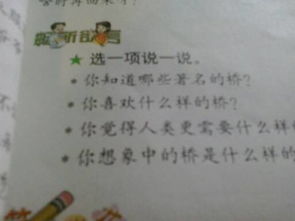 畅所欲言
★ 选一项说一说。
• 你知道哪些著名的桥?
• 你喜欢什么样的桥?
• 你觉得人类更需要什么样的
• 你想象中的桥是什么样的